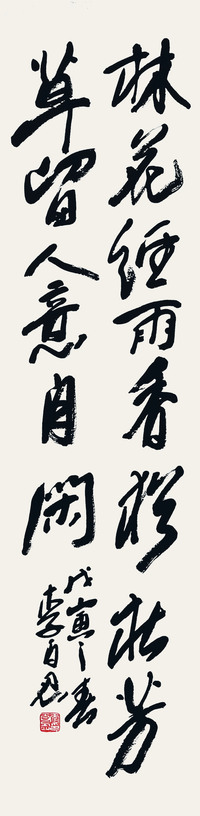 林花經雨香猶在芳
草留人意自閑
戊寅之春
李自